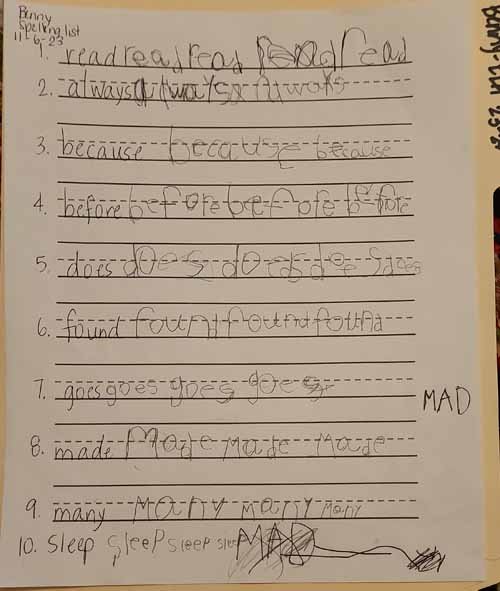 Binny
Spelling list
11-6-23
1. read read read read read
2. always always always
3. because because because
4. before before before before
5. does does does does does
6. found found found found
7. goes goes goes goes
MAD
8. made made made made
9. many many many many
10. sleep sleep sleep sleep MAD